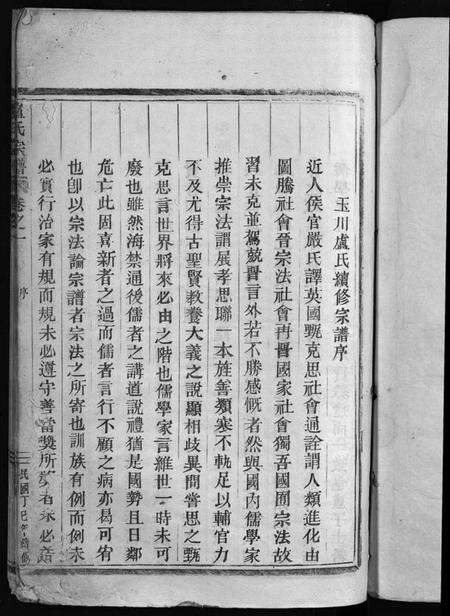 玉川盧氏續修宗譜序
近人侯官嚴氏譯英國甄克思社會通詮謂人類進化由
圖騰社會晉宗法社會再晋國家社會獨吾國囿宗法故
習未克並駕兢晋言外若不勝感慨者然與國内儒學家
推崇宗法謂展孝思聯一本旌善類塞不軌足以輔官力
不及尤得古聖賢教養大義之說顯相歧異間嘗思之甄
克思言世界將來必由之階也儒學家言維世一時未可
廢也雖然海禁通後儒者之講道說禮猶是國勢且日鄰
危亡此固喜新者之過而儒者言行不顧之病亦曷可宥
也卽以宗法論宗譜者宗法之所寄也訓族有例而例未
必實行治家有規而規未必遵守善當獎所獎者未必善
盧氏宗譜
卷之一
序
一
民國丁巳年續修